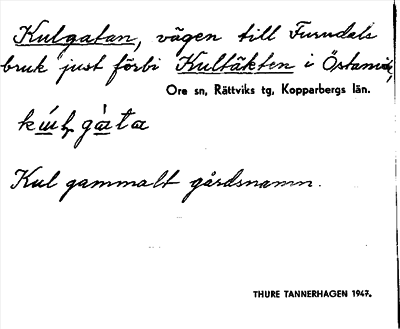 Kulgatan, vägen till Furudals
bruk just förbi Kultäkten i Östanvik,
Ore sn, Rättviks tg, Kopparbergs län.
Kul gammalt gårdsnamn.
THURE TANNERHAGEN 1947.